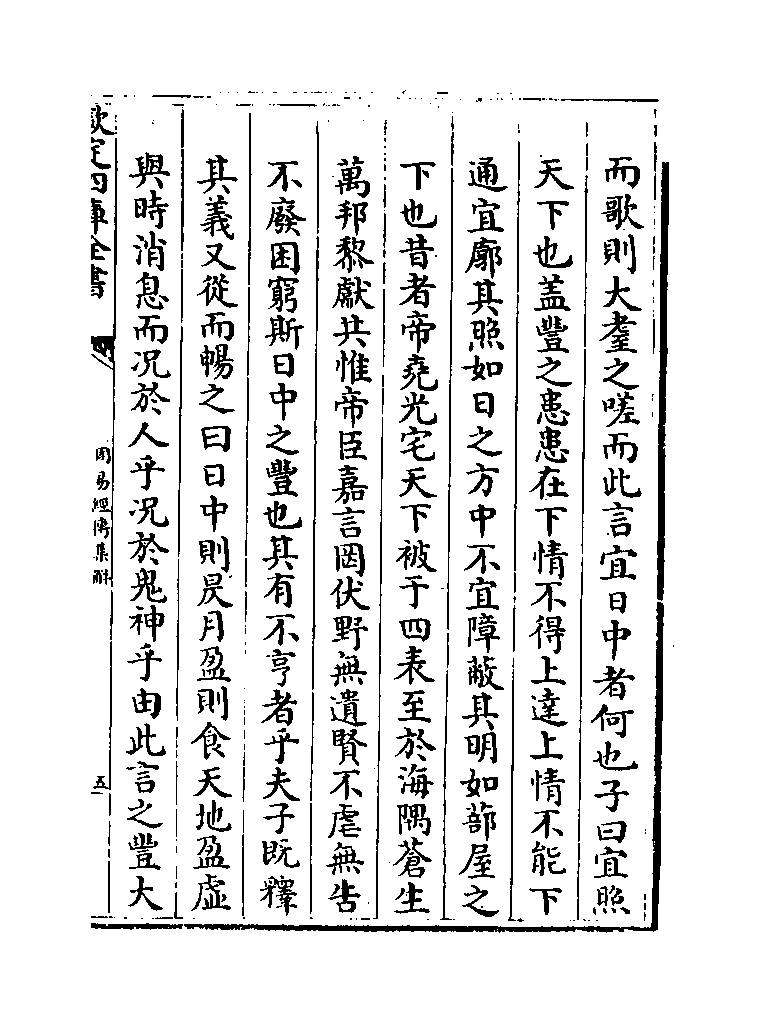 而歌則大耋之嗟而此言宜日中者何也子曰宜照
天下也盖豐之患患在下情不得上達上情不能下
通宜廓其照如日之方中不宜障蔽其明如蔀屋之
下也昔者帝堯光宅天下被于四表至於海隅蒼生
萬邦黎獻共惟帝臣嘉言罔伏野無遺賢不虐無告
不廢困窮斯日中之豐也其有不亨者乎夫子既釋
其義又從而暢之曰日中則昃月盈則食天地盈虛
與時消息而况於人乎况於鬼神乎由此言之豐大
欽定四庫全書
周易經傳集解
五